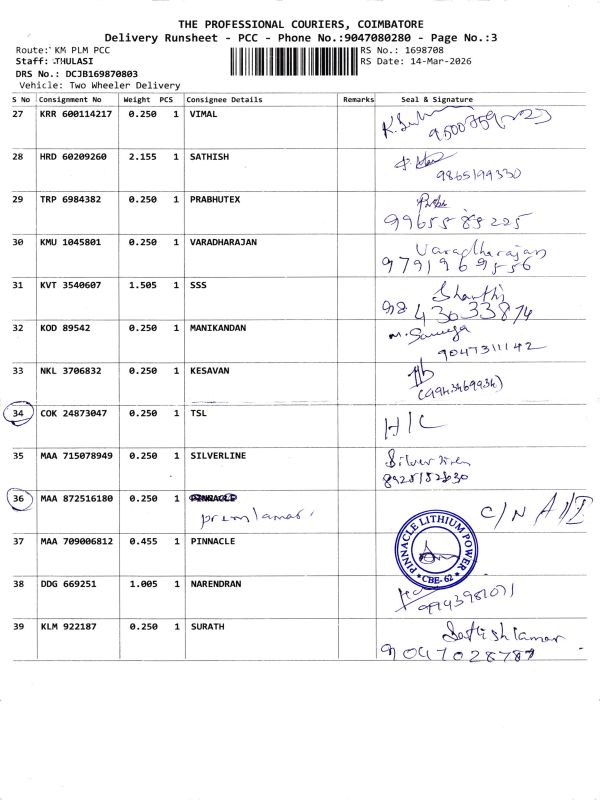 THE PROFESSIONAL COURIERS, COIMBATORE
Delivery Runsheet - PCC - Phone No.:9047080280 - Page No.:3
Route: KM PLM PCC
RS No.: 1698708
Staff: THULASI
RS Date: 14-Mar-2026
DRS No.: DCJB169870803
Vehicle: Two Wheeler Delivery
S No Consignment No Weight PCS Consignee Details Remarks Seal & Signature
27 KRR 600114217 0.250 1 VIMAL
28 HRD 60209260 2.155 1 SATHISH
9865199330
29 TRP 6984382 0.250 1 PRABHUTEX
9965589225
30 KMU 1045801 0.250 1 VARADHARAJAN Varadharajan
9791969556
31 KVT 3540607 1.505 1 SSS Shanthi
9843633874
32 KOD 89542 0.250 1 MANIKANDAN
9047311142
33 NKL 3706832 0.250 1 KESAVAN
34 COK 24873047 0.250 1 TSL H/C
35 MAA 715078949 0.250 1 SILVERLINE
36 MAA 872516180 0.250 1 PINNACLE
37 MAA 709006812 0.455 1 PINNACLE PINNACLE LITHIUM POWER
CBE-62
38 DDG 669251 1.005 1 NARENDRAN
9943981071
39 KLM 922187 0.250 1 SURATH
9047028787